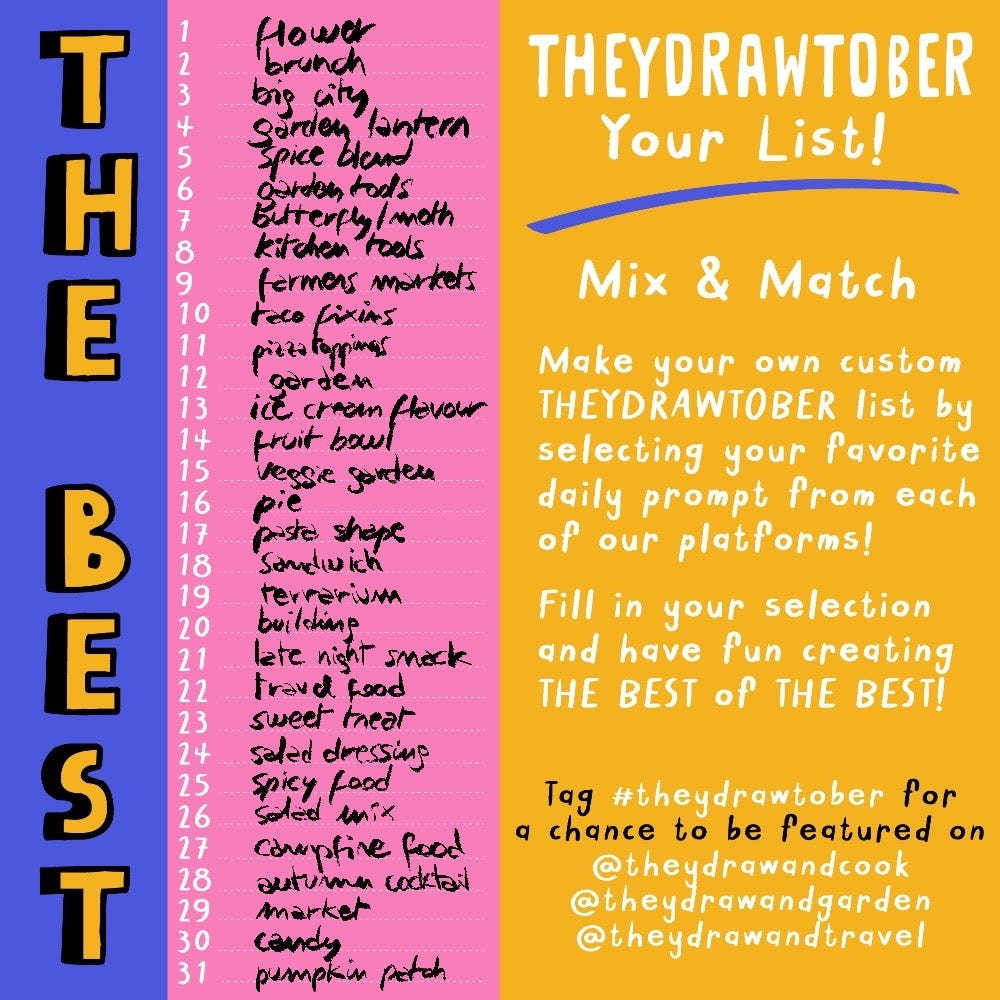 THE BEST
1 flower
2 brunch
3 big city
4 garden lantern
5 spice blend
6 garden tools
7 butterfly/moth
8 kitchen tools
9 farmers markets
10 taco fixins
11 pizza toppings
12 garden
13 ice cream flavour
14 fruit bowl
15 veggie garden
16 pie
17 pasta shape
18 sandwich
19 terrarium
20 building
21 late night snack
22 travel food
23 sweet treat
24 salad dressing
25 spicy food
26 salad mix
27 campfire food
28 autumn cocktail
29 market
30 candy
31 pumpkin patch
THEYDRAWTOBER
Your List!
Mix & Match
Make your own custom
THEYDRAWTOBER list by
selecting your favorite
daily prompt from each
of our platforms!
Fill in your selection
and have fun creating
THE BEST of THE BEST!
Tag #theydrawtober for
a chance to be featured on
@theydrawandcook
@theydrawandgarden
@theydrawandtravel